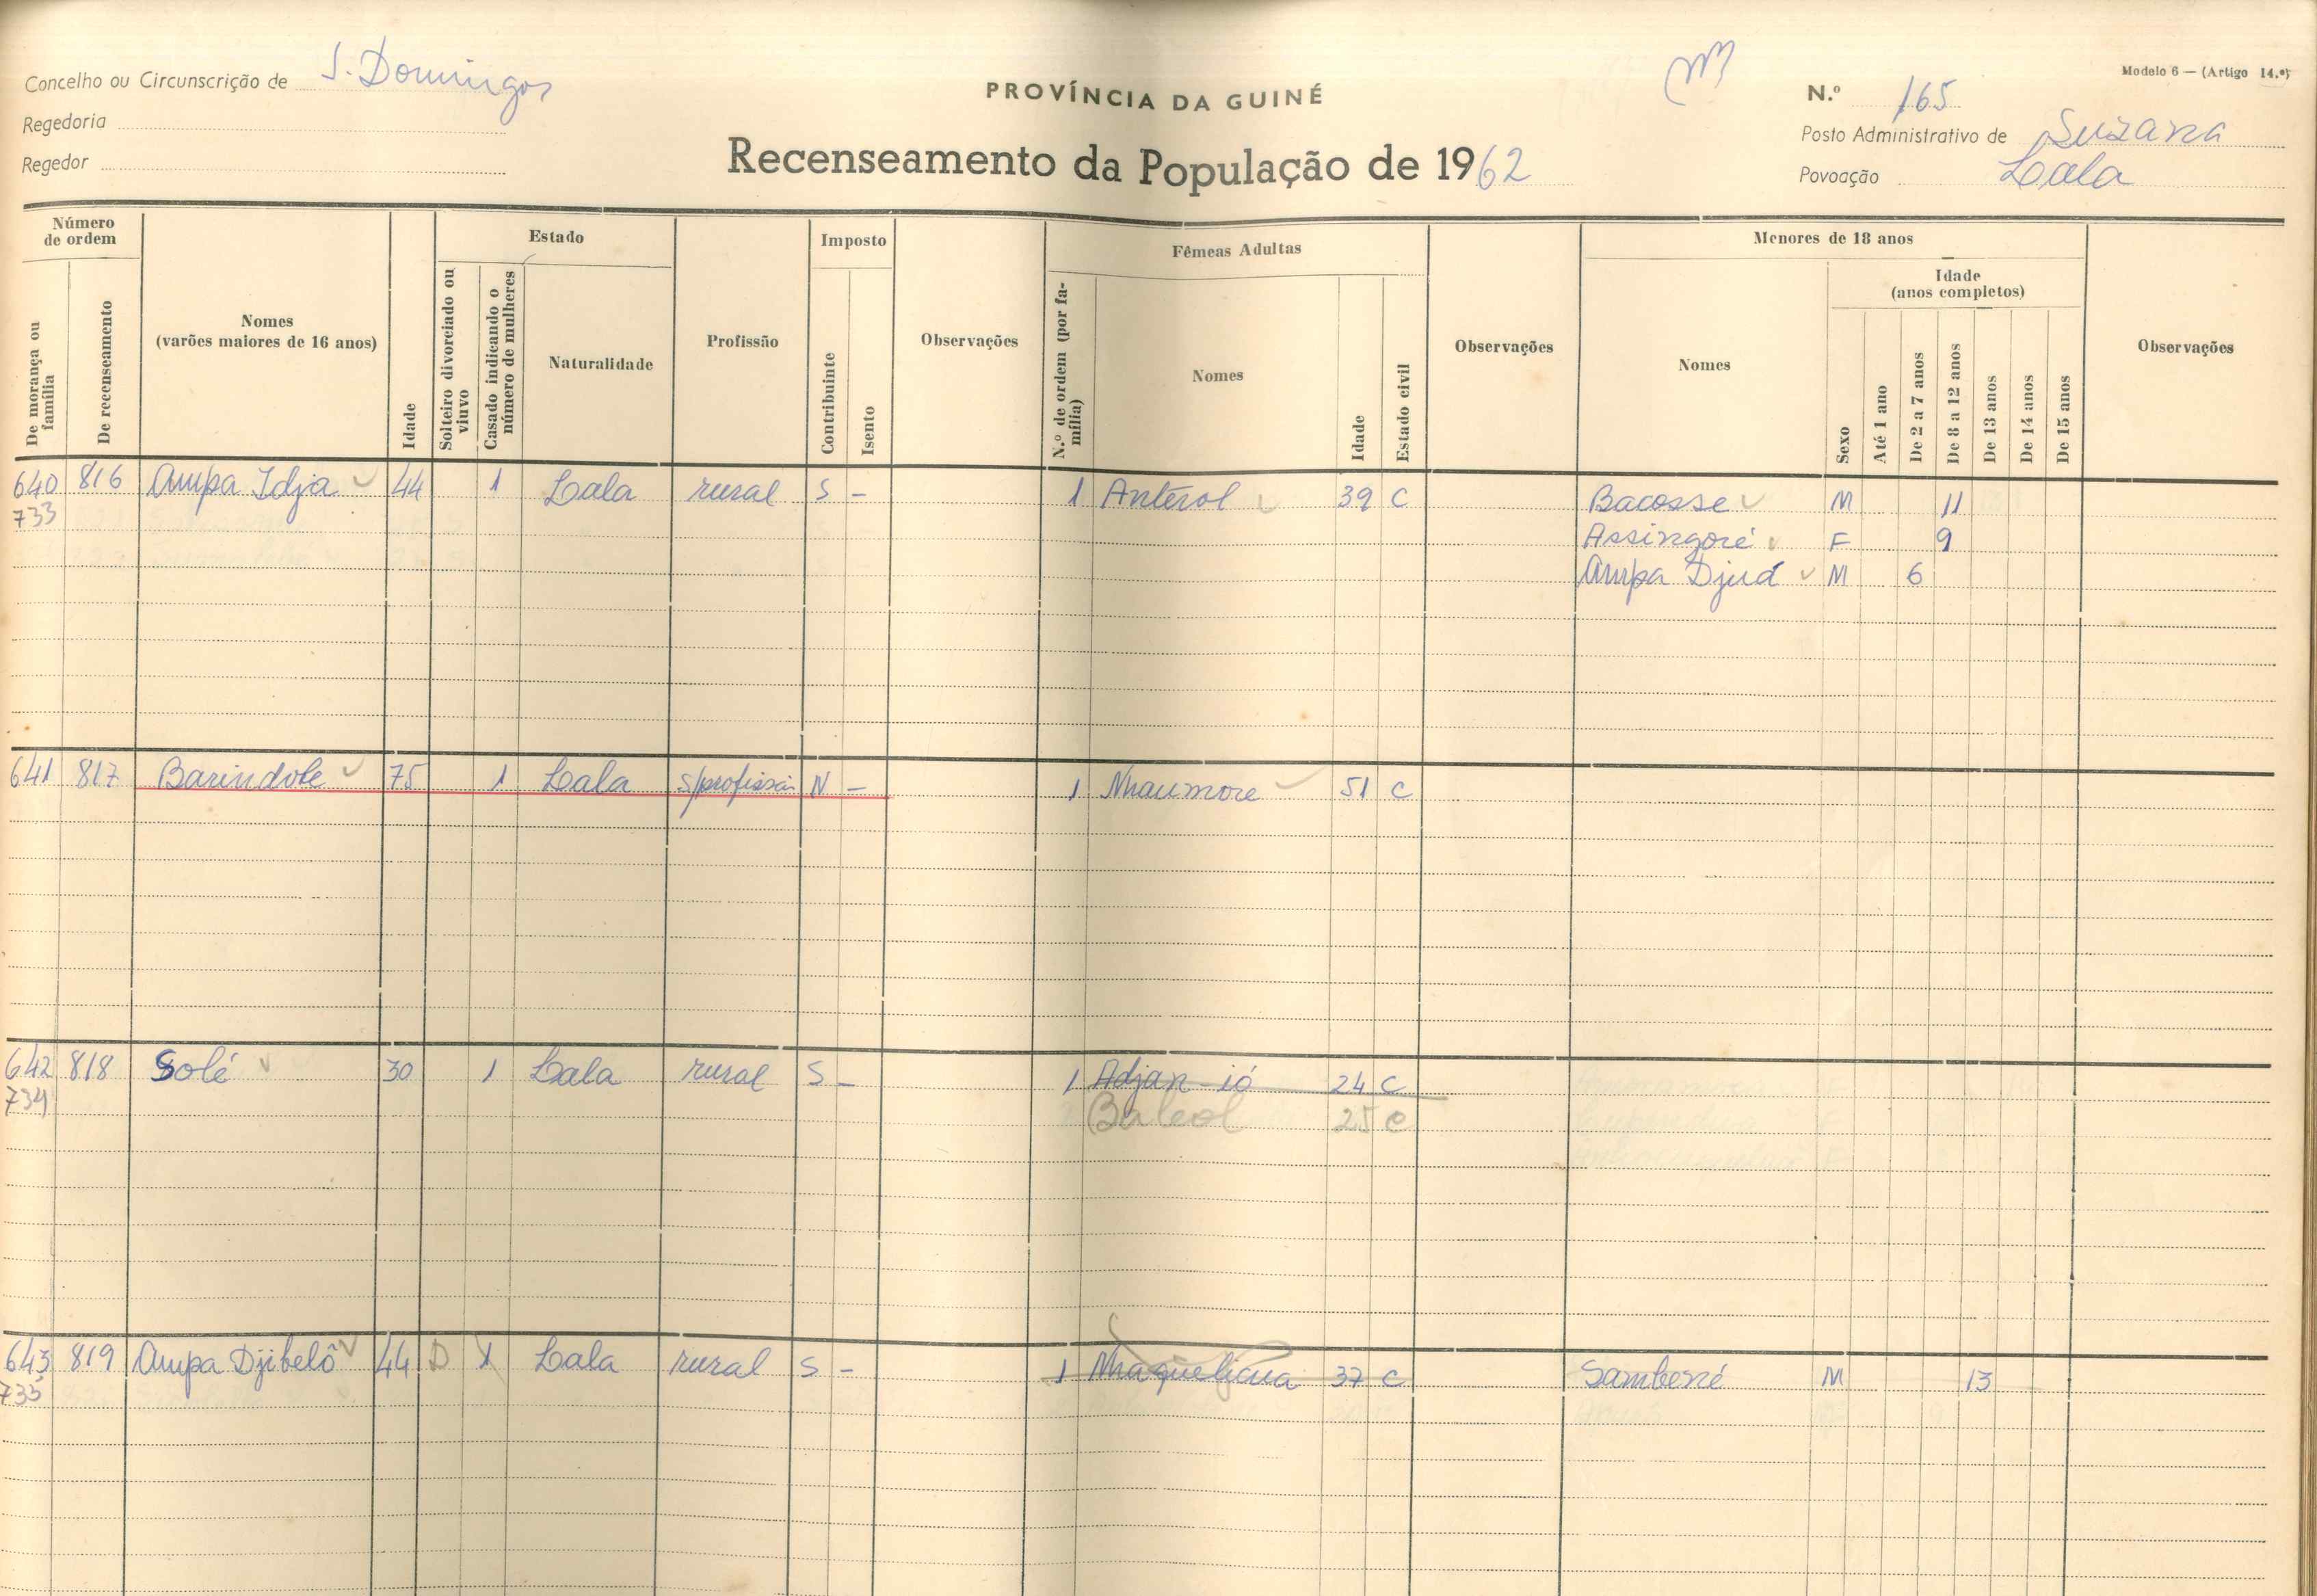 Modelo 6 — (Artigo 14.º)
Concelho ou Circunscrição de S. Domingos
PROVÍNCIA DA GUINÉ
N.º 165
Regedoria
Posto Administrativo de Suzana
Regedor
Recenseamento da População de 1962
Povoação Lala
Número de ordem
De morança ou família
De recenseamento
Nomes
(varões maiores de 16 anos)
Idade
Estado
Solteiro divorciado ou viuvo
Casado indicando o número de mulheres
Naturalidade
Profissão
Imposto
Contribuinte
Isento
Observações
Fêmeas Adultas
N.º de ordem (por família)
Nomes
Idade
Estado civil
Observações
Menores de 18 anos
Nomes
Sexo
Idade
(anos completos)
Até 1 ano
De 2 a 7 anos
De 8 a 12 anos
De 13 anos
De 14 anos
De 15 anos
Observações
640 816 Ampa Idja 44 1 Lala rural S – 1 Anterol 39 C Bacosse M 11
733
Assingoré F 9
Ampa Djud M 6
641 817 Barindole 75 1 Lala s/profissão N – 1 Nhaumore 51 C
642 818 Solé 30 1 Lala rural S – 1 Adjan-ió 24 C
734 Baleol 25 C
643 819 Ampa Djibelô 44 D 1 Lala rural S – 1 Nhaquelicua 37 C Samberé M 13
735